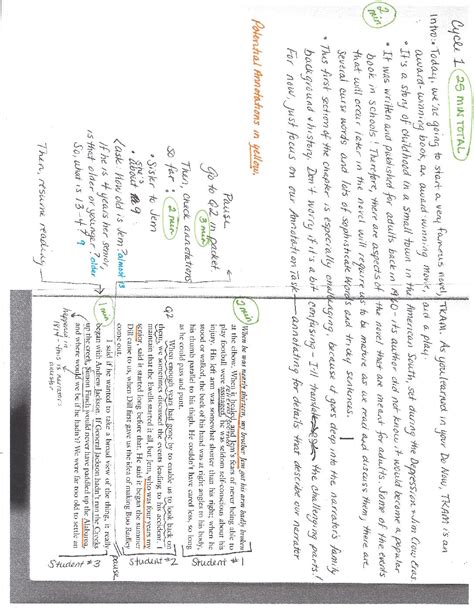 Cycle 1 25 MIN TOTAL
2 min
Intro: • Today, we're going to start a very famous novel, TKAM. As you learned in your Do Now, TKAM is an
award-winning book, an award winning movie, and a play.
• It's a story of childhood in a small town in the American South, set during the Depression
• It was written and published for adults back in 1960 - its author did not know it would become a popular
book in schools! Therefore, there are aspects of the novel that are meant for adults. Some of the events
that will occur later in the novel will require us to be mature as we read and discuss them; there are
several curse words and lots of sophisticated words and tricky sentences.
• This first section of the chapter is especially challenging, because it goes deep into the narrator's family
background & history. Don't worry if it's a bit confusing - I'll the challenging parts!
For now, just focus on our Annotation Task - annotating for details that describe our narrator
Potential Annotations in yellow.
Pause
Go to Q2 in packet
3 min
Then, check annotations
so far: 2 min
• Sister to Jem
• She's about 9
(ask: How old is Jem? almost 13
If he is 4 years her senior,
is that older or younger? older
So, what is 13-4? 9
Then, resume reading
2 min
When he was nearly thirteen, my brother Jem got his arm badly broken
at the elbow. When it healed, and Jem's fears of never being able to
play football were assuaged, he was seldom self-conscious about his
injury. His left arm was somewhat shorter than his right; when he
stood or walked, the back of his hand was at right angles to his body,
his thumb parallel to his thigh. He couldn't have cared less, so long
as he could pass and punt.
Q2
When enough years had gone by to enable us to look back on
them, we sometimes discussed the events leading to his accident. I
maintain that the Ewells started it all, but Jem, who was four years my
senior, said it started long before that. He said it began the summer
Dill came to us, when Dill first gave us the idea of making Boo Radley
come out.
1 min
I said if he wanted to take a broad view of the thing, it really
began with Andrew Jackson. If General Jackson hadn't run the Creeks
up the creek, Simon Finch would never have paddled up the Alabama,
and where would we be if he hadn't? We were far too old to settle an
Student #1
Student #2
pause
Student #3